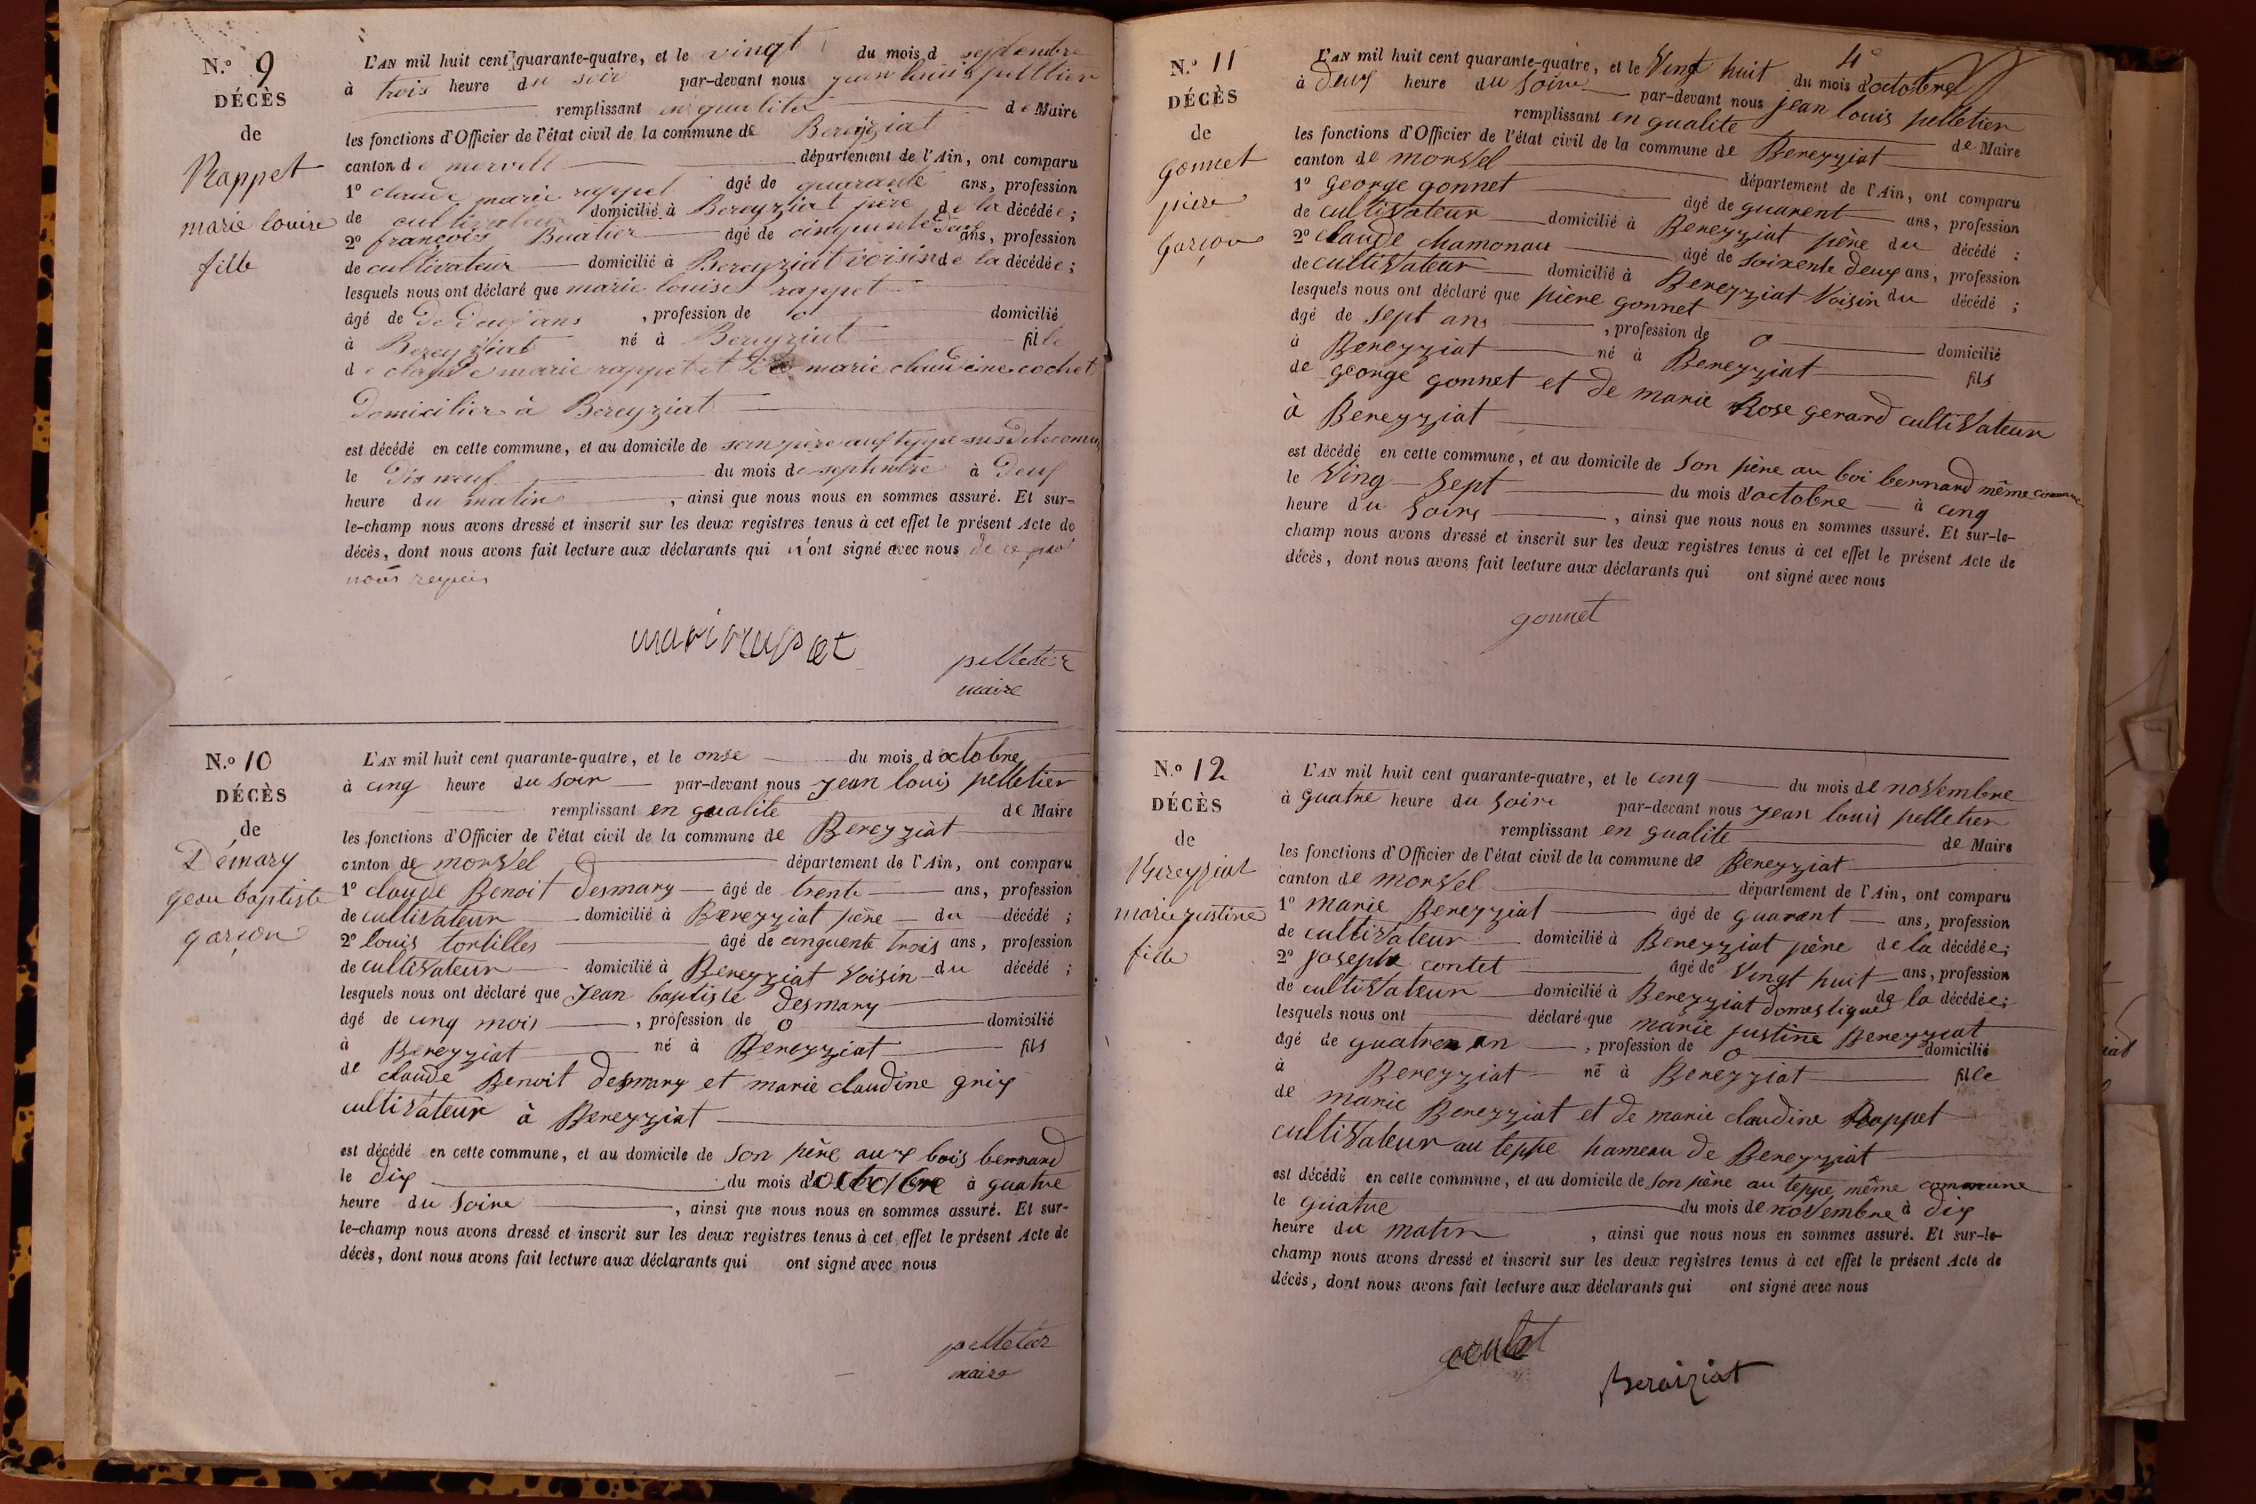 N.º 9
DÉCÈS
de
Rappet
marie louise
fille
L'AN mil huit cent quarante-quatre, et le vingt du mois d septembre
à trois heure du soir par-devant nous jean louis pelletier
remplissant en qualite de Maire
les fonctions d'Officier de l'état civil de la commune de Bereyziat
canton de département de l'Ain, ont comparu
1º claude marie rappet âgé de quarante ans, profession
de cultivateur domicilié à Bereyziat père de la décédée;
2º françois Buatier âgé de cinquante ans, profession
de cultivateur domicilié à Bereyziat voisin de la décédée;
lesquels nous ont déclaré que marie louise rappet
âgé de De deux ans, profession de o domicilié
à Bereyziat né à Bereyziat fille
de claude marie rappet et de marie claudine cochet
Domicilier à Bereyziat
est décédé en cette commune, et au domicile de son père
le Dix neuf du mois de septembre à Deux
heure du matin, ainsi que nous nous en sommes assuré. Et sur-
le-champ nous avons dressé et inscrit sur les deux registres tenus à cet effet le présent Acte de
décès, dont nous avons fait lecture aux déclarants qui n'ont signé avec nous de ce
nous
pelletier
maire
N.º 10
DÉCÈS
de
Démary
geau baptiste
garçon
L'AN mil huit cent quarante-quatre, et le onse du mois d'octobre
à cinq heure du soir par-devant nous jean louis pelletier
remplissant en qualite de Maire
les fonctions d'Officier de l'état civil de la commune de Bereyziat
canton de monvel département de l'Ain, ont comparu
1º claude Benoit Desmary âgé de trente ans, profession
de cultivateur domicilié à Bereyziat père du décédé;
2º louis tortilles âgé de cinquente trois ans, profession
de cultivateur domicilié à Bereyziat voisin du décédé;
lesquels nous ont déclaré que Jean baptiste Desmary
âgé de cinq mois, profession de o domicilié
à Bereyziat né à Bereyziat fils
de claude Benoit Desmary et marie claudine grix
cultivateur à Bereyziat
est décédé en cette commune, et au domicile de son père aux bois bernard
le dix du mois d'octobre à quatre
heure du soire, ainsi que nous nous en sommes assuré. Et sur-
le-champ nous avons dressé et inscrit sur les deux registres tenus à cet effet le présent Acte de
décès, dont nous avons fait lecture aux déclarants qui ont signé avec nous
pelletier
maire
4e
N.º 11
DÉCÈS
de
gonnet
pière
garçon
L'AN mil huit cent quarante-quatre, et le Vingt huit du mois d'octobre
à deux heure du soire par-devant nous jean louis pelletier
remplissant en qualite de Maire
les fonctions d'Officier de l'état civil de la commune de Bereyziat
canton de monvel département de l'Ain, ont comparu
1º george gonnet âgé de quarent ans, profession
de cultivateur domicilié à Bereyziat père du décédé;
2º claude chamonau âgé de soixente deux ans, profession
de cultivateur domicilié à Bereyziat Voisin du décédé;
lesquels nous ont déclaré que pière gonnet
âgé de sept ans, profession de o domicilié
à Bereyziat né à Bereyziat fils
de george gonnet et de marie Rose gerard cultivateur
à Bereyziat
est décédé en cette commune, et au domicile de son père au boi bernard même commune
le Ving sept du mois d'octobre à cinq
heure du soire, ainsi que nous nous en sommes assuré. Et sur-le-
champ nous avons dressé et inscrit sur les deux registres tenus à cet effet le présent Acte de
décès, dont nous avons fait lecture aux déclarants qui ont signé avec nous
gonnet
N.º 12
DÉCÈS
de
Bereyziat
marie justine
fille
L'AN mil huit cent quarante-quatre, et le cinq du mois de novembre
à quatre heure du soire par-devant nous jean louis pelletier
remplissant en qualite de Maire
les fonctions d'Officier de l'état civil de la commune de Bereyziat
canton de monvel département de l'Ain, ont comparu
1º marie Bereyziat âgé de quarant ans, profession
de cultivateur domicilié à Bereyziat père de la décédée;
2º joseph contet âgé de Vingt huit ans, profession
de cultivateur domicilié à Bereyziat domestique de la décédée;
lesquels nous ont déclaré que marie justine Bereyziat
âgé de quatre an, profession de o domicilié
à Bereyziat né à Bereyziat fille
de marie Bereyziat et de marie claudine Rappet
cultivateur au teppe hameau de Bereyziat
est décédé en cette commune, et au domicile de son père au teppe même commune
le quatre du mois de novembre à dix
heure du matin, ainsi que nous nous en sommes assuré. Et sur-le-
champ nous avons dressé et inscrit sur les deux registres tenus à cet effet le présent Acte de
décès, dont nous avons fait lecture aux déclarants qui ont signé avec nous
Beraiziat